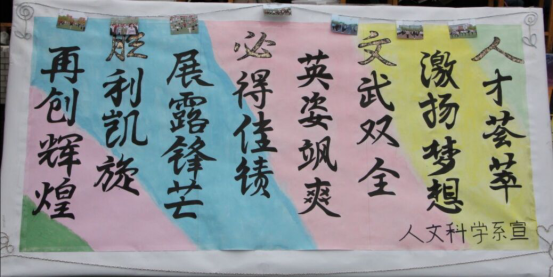 人才荟萃
激扬梦想
文武双全
英姿飒爽
必得佳绩
展露锋芒
胜利凯旋
再创辉煌
人文科学系宣